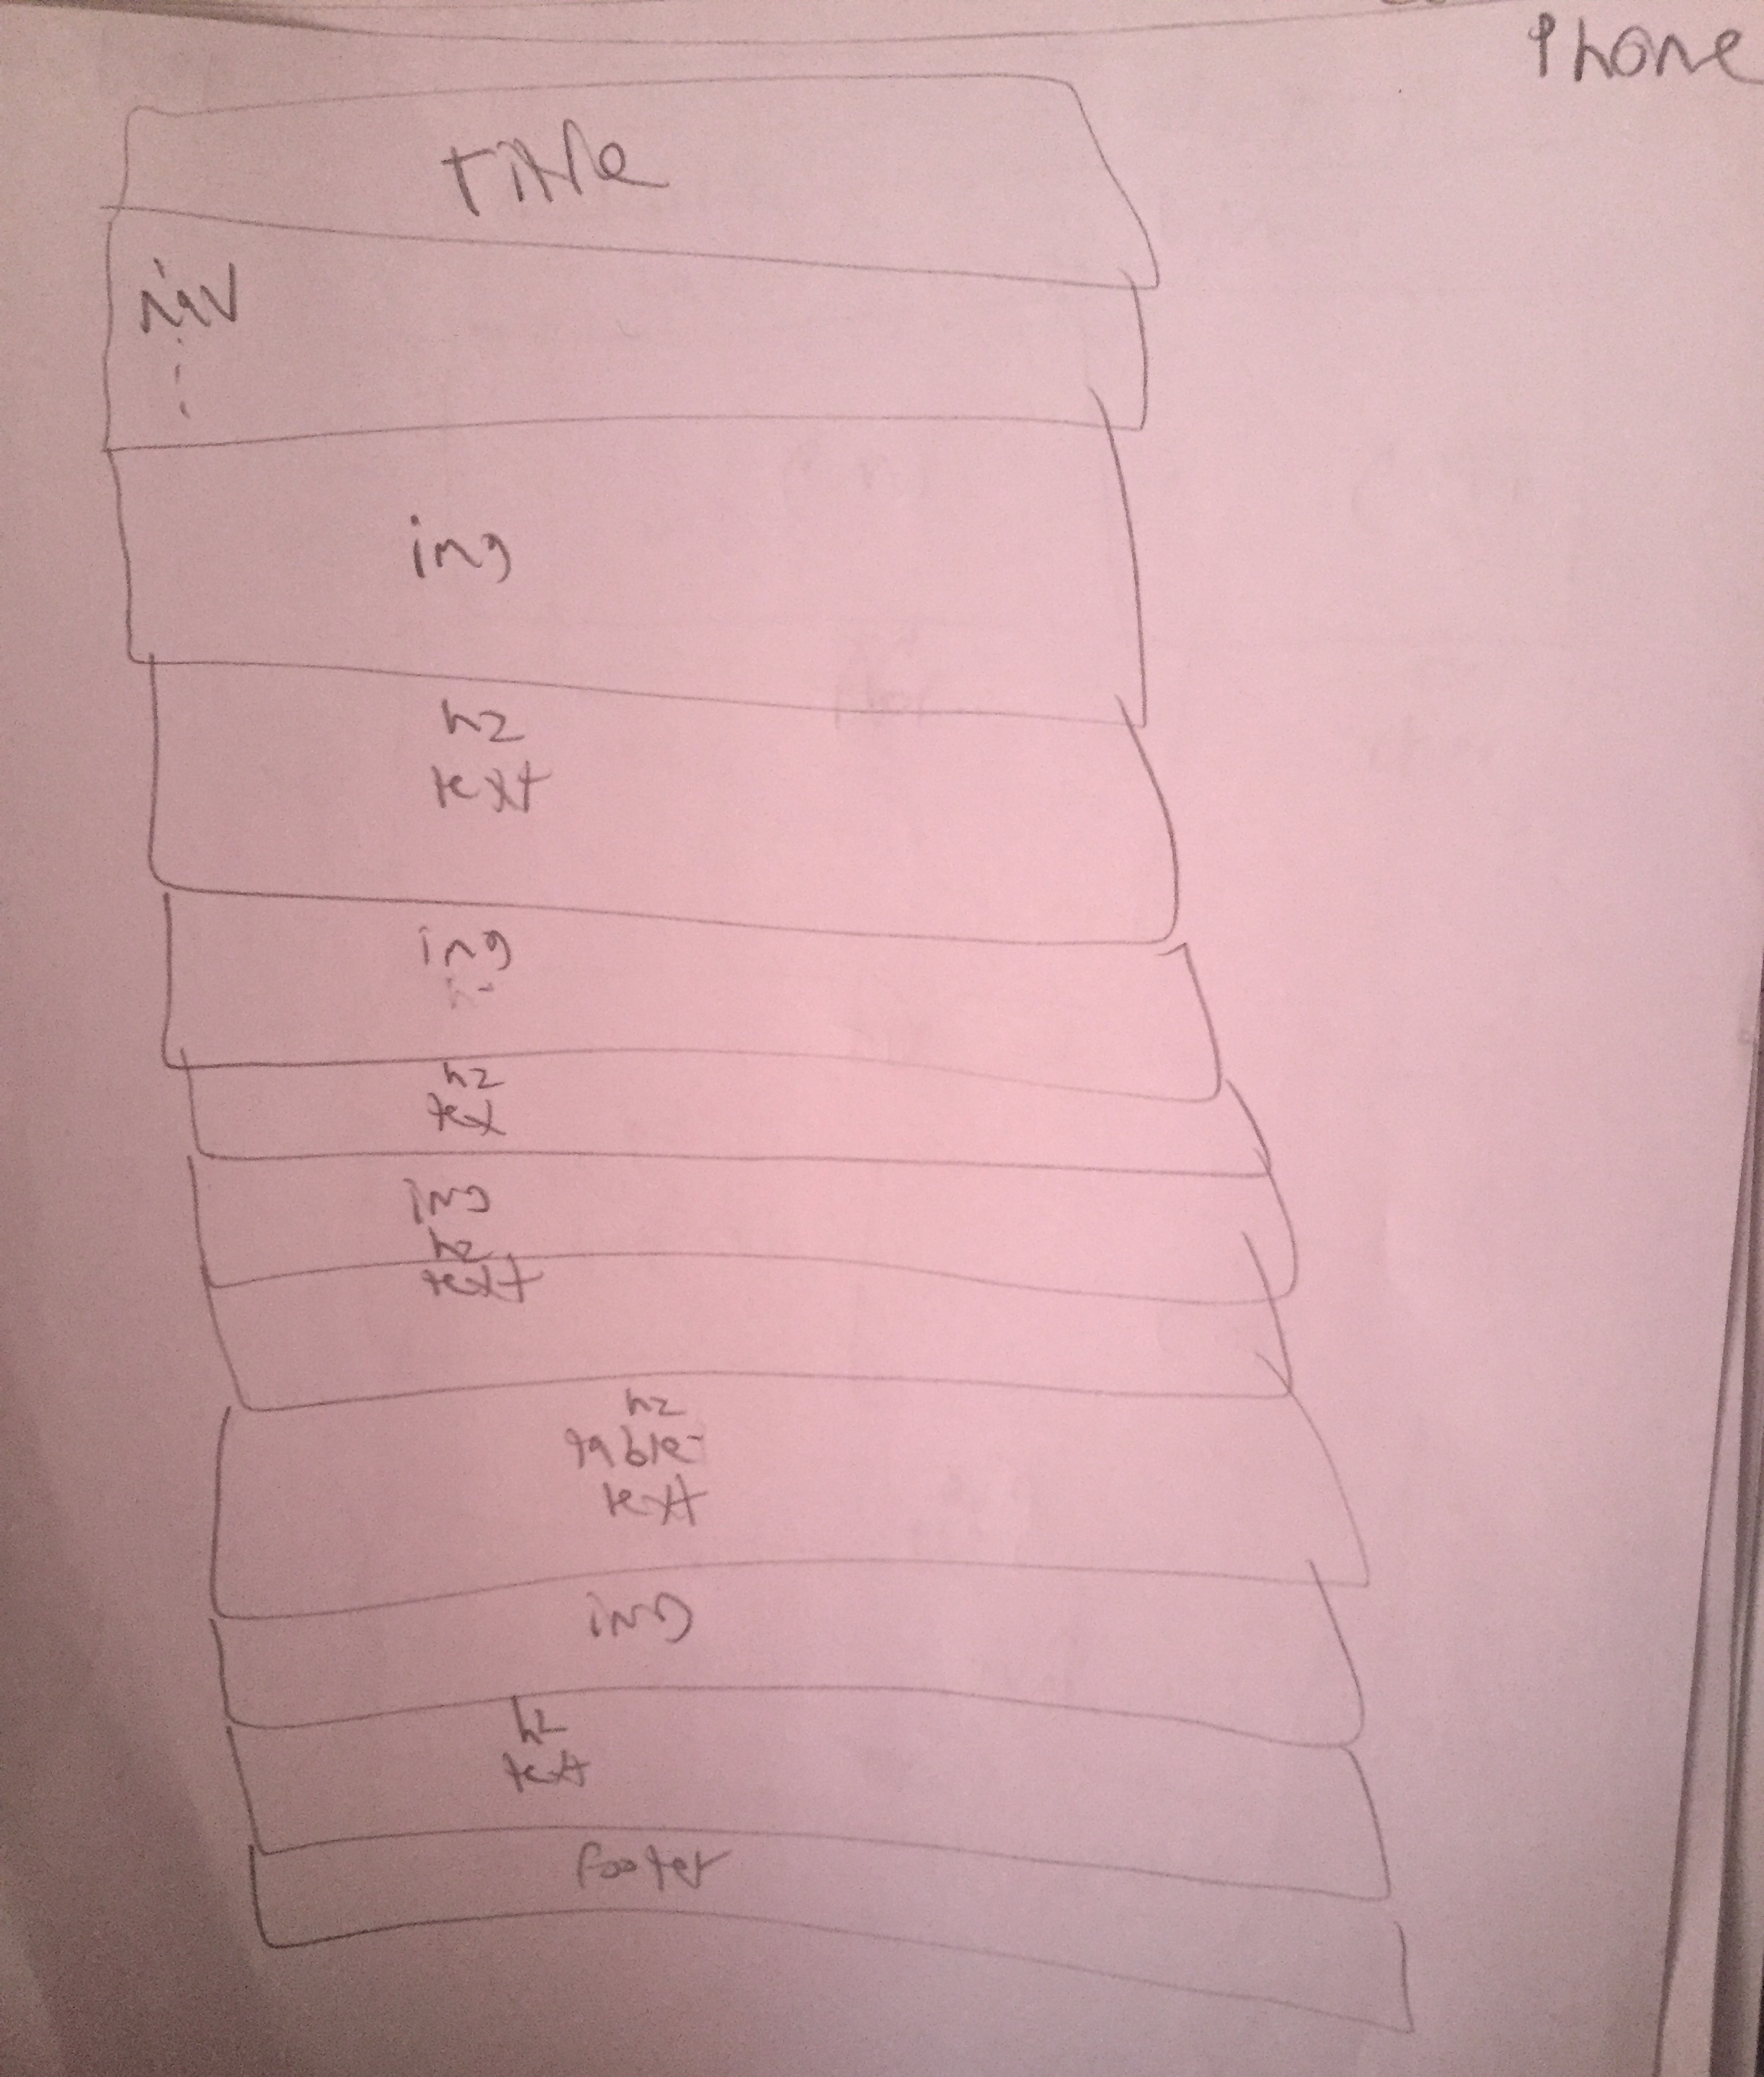 Phone
Title
nav
img
h2
text
img
h2
text
img
h2
text
h2
table
text
img
h2
text
footer